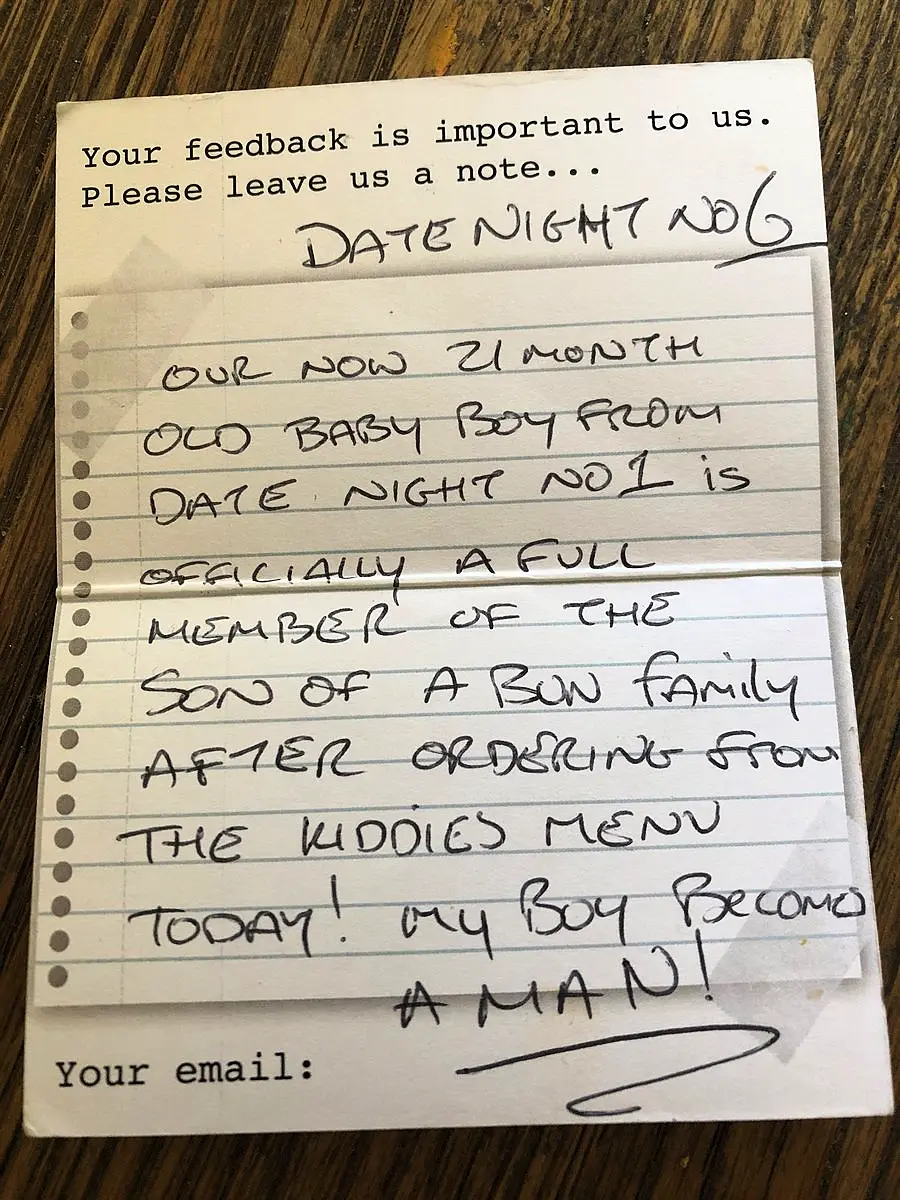 Your feedback is important to us.
Please leave us a note...
DATE NIGHT NO 6
OUR NOW 21 MONTH
OLD BABY BOY FROM
DATE NIGHT NO 1 is
OFFICIALLY A FULL
MEMBER OF THE
SON OF A BUN FAMILY
AFTER ORDERING FROM
THE KIDDIES MENU
TODAY! MY BOY BECOMES
A MAN!
Your email: